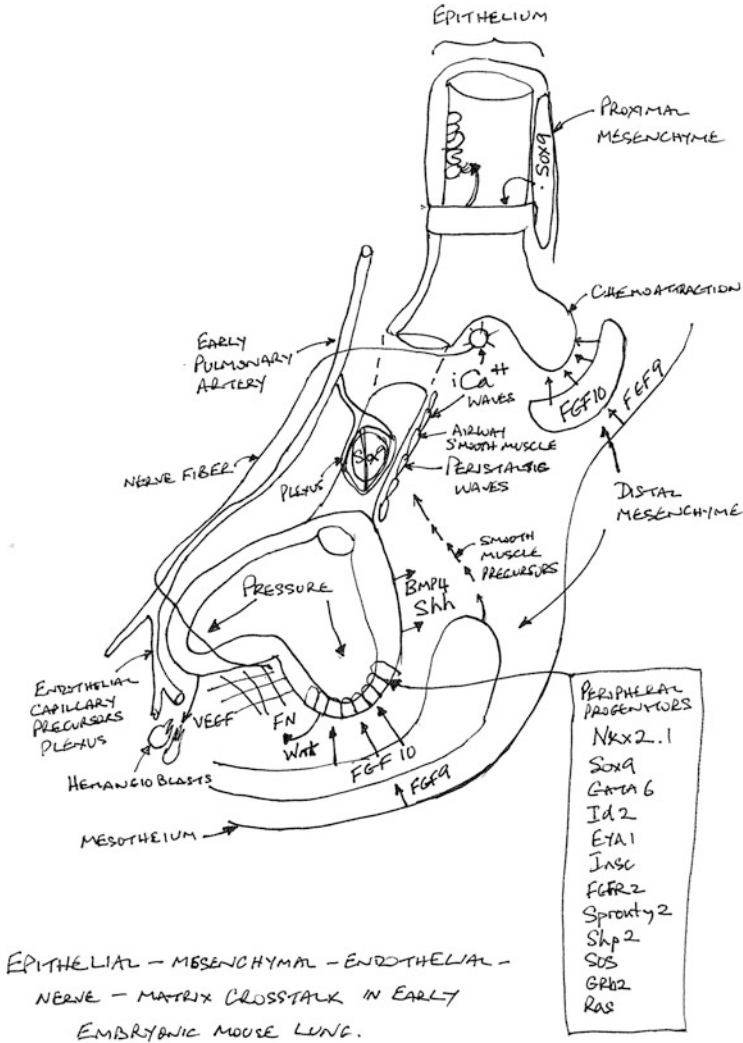 EPITHELIUM
PROXIMAL
MESENCHYME
Sox9
CHEMOATTRACTION
EARLY
PULMONARY
ARTERY
iCa++
WAVES
FGF10
FGF9
AIRWAY
SMOOTH MUSCLE
PERISTALSIS
WAVES
Sox9
PLEXUS
NERVE FIBER
DISTAL
MESENCHYME
SMOOTH
MUSCLE
PRECURSORS
PRESSURE
BMP4
Shh
ENDOTHELIAL
CAPILLARY
PRECURSORS
PLEXUS
VEGF
FN
Wnt
FGF10
FGF9
HEMANGIOBLASTS
MESOTHEIUM
PERIPHERAL
PROGENITORS
Nkx2.1
Sox9
GATA6
Id2
EYA1
Insc
FGFR2
Sprouty2
Shp2
SOS
GRb2
Ras
EPITHELIAL - MESENCHYMAL - ENDOTHELIAL -
NERVE - MATRIX CROSSTALK IN EARLY
EMBRYONIC MOUSE LUNG.